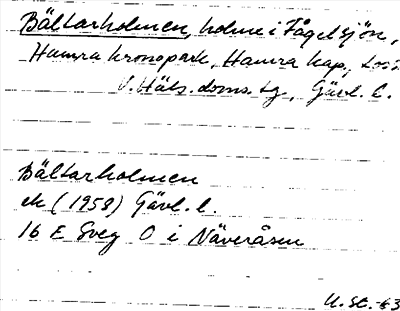 Bältarholmen, holme i Fågelsjön,
Hamra kronopark, Hamra kap.,
V. Häls. doms. tg, Gävl. l.
Bältarholmen
ek (1958) Gävl. l.
16 E Sveg O i Näveråsen
U. St. -63